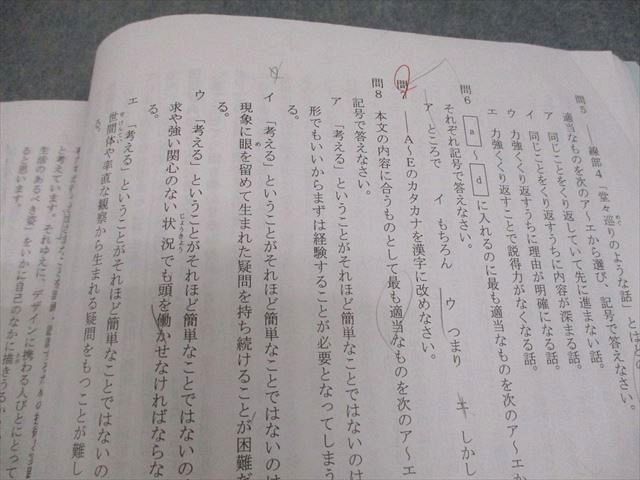 問5 ――線部4「堂々巡りのような話」とは
適当なものを次のア～エから選び、記号で答えなさい。
ア 同じことをくり返していて先に進まない話。
イ 同じことをくり返すうちに内容が深まる話。
ウ 力強くくり返すうちに理由が明確になる話。
エ 力強くくり返すことで説得力がなくなる話。
問6 a ～ d に入れるのに最も適当なものを次のア～エか
それぞれ記号で答えなさい。
ア ところで イ もちろん ウ つまり エ しかし
問7 ――A～Eのカタカナを漢字に改めなさい。
問8 本文の内容に合うものとして最も適当なものを次のア～エ
記号で答えなさい。
ア 「考える」ということがそれほど簡単なことではないのは
形でもいいからまずは経験することが必要となってしまう
る。
イ 「考える」ということがそれほど簡単なことではないのは
現象に眼を留めて生まれた疑問を持ち続けることが困難だ
る。
ウ 「考える」ということがそれほど簡単なことではないの
求や強い関心のない状況でも頭を働かせなければならな
る。
エ 「考える」ということがそれほど簡単なことではないの
世間体や率直な観察から生まれる疑問をもつことが難し
る。
と考えています。それゆえに、デザインに携わる人びとにとって
生活のあるべき姿」をいかに自己のなかに描きうるか
ると思います。